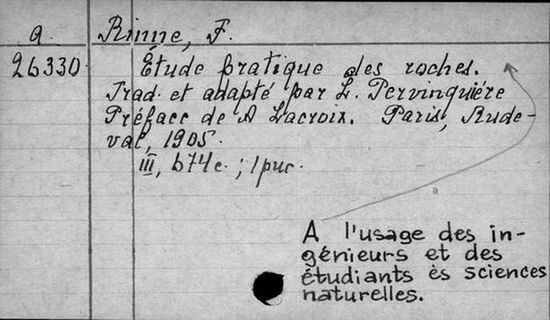 a. Rinne, F.
26330. Étude pratique des roches.
Trad. et adapté par L. Pervinquière
Préface de A Lacroix. Paris, Rude-
val, 1905.
III, 674 c. ; 1 рис.
A l'usage des in-
génieurs et des
étudiants ès sciences
naturelles.